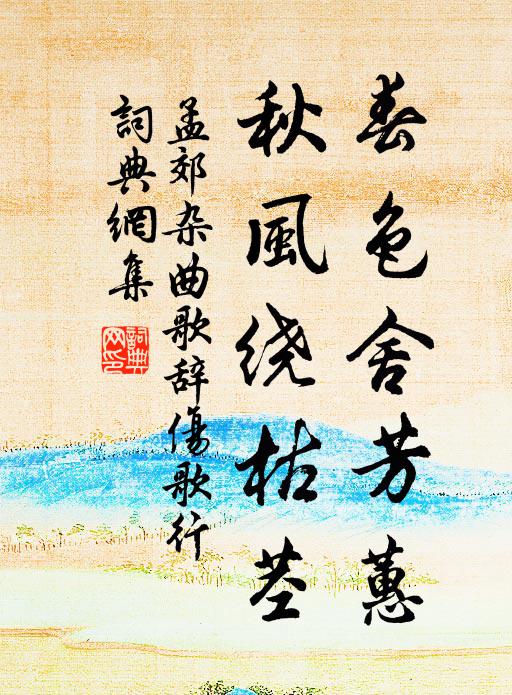 春色舍芳蕙
秋風绕枯茎
孟郊杂曲歌辞傷歌行
詞典網集
詞典网印